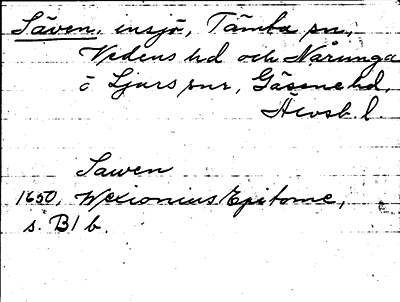 Säven, insjö, Tämta sn,
Vedens hd och Nårunga
o Ljurs snr, Gäsene hd,
Älvsb. l.
Sawen
1650, Wexionius Epitome,
s. B1 b.